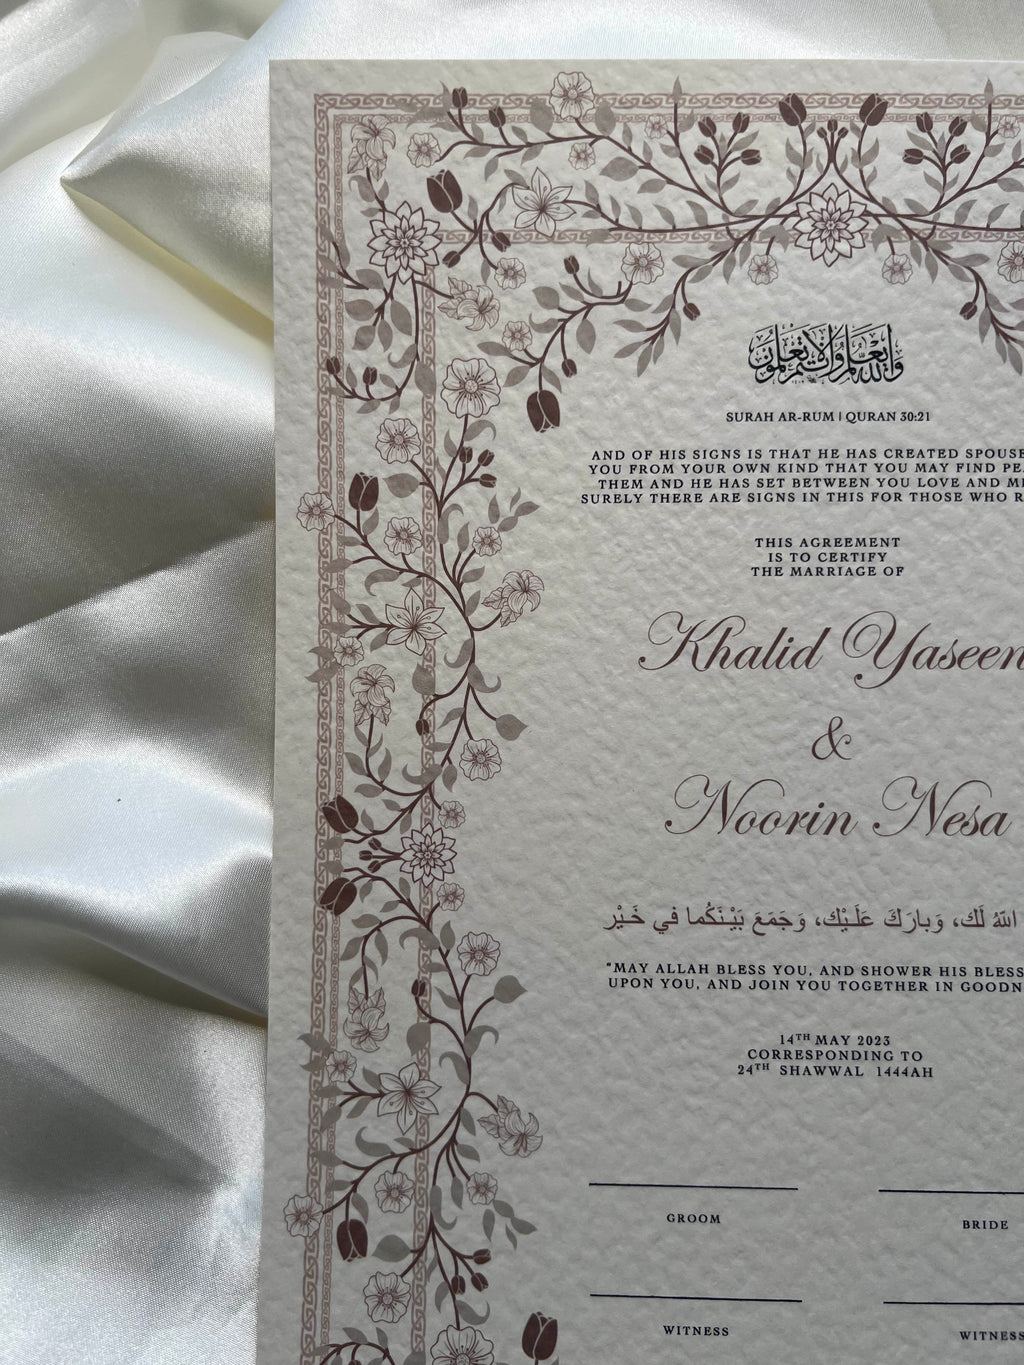 وَاللهُ يَعْلَمُ وَأَنْتُمْ لَا تَعْلَمُونَ
SURAH AR-RUM | QURAN 30:21
AND OF HIS SIGNS IS THAT HE HAS CREATED SPOUSE
YOU FROM YOUR OWN KIND THAT YOU MAY FIND PEA
THEM AND HE HAS SET BETWEEN YOU LOVE AND ME
SURELY THERE ARE SIGNS IN THIS FOR THOSE WHO R
THIS AGREEMENT
IS TO CERTIFY
THE MARRIAGE OF
Khalid Yaseen
&
Noorin Nesa
اللهُ لَك، وَبارَكَ عَلَيْك، وَجَمَعَ بَيْنَكُما في خَيْر
"MAY ALLAH BLESS YOU, AND SHOWER HIS BLESS
UPON YOU, AND JOIN YOU TOGETHER IN GOODN
14TH MAY 2023
CORRESPONDING TO
24TH SHAWWAL 1444AH
GROOM BRIDE
WITNESS WITNESS